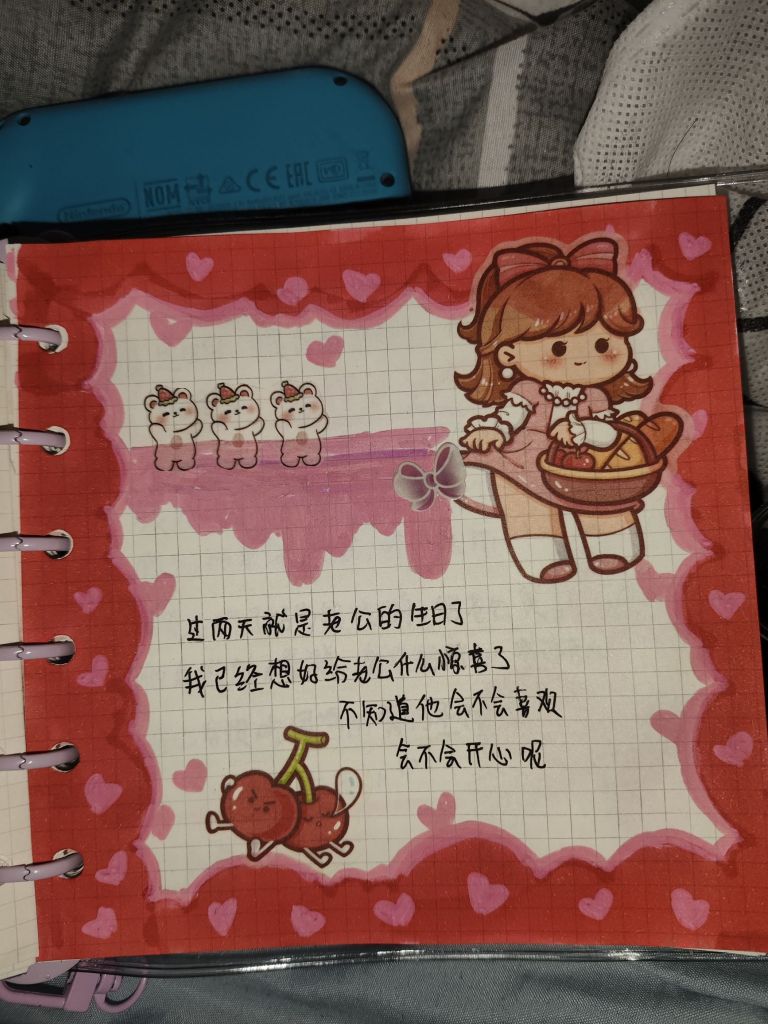 Nintendo
NOM CE EAC
过两天就是老公的生日了
我已经想好给老公什么惊喜了
不知道他会不会喜欢
会不会开心呢